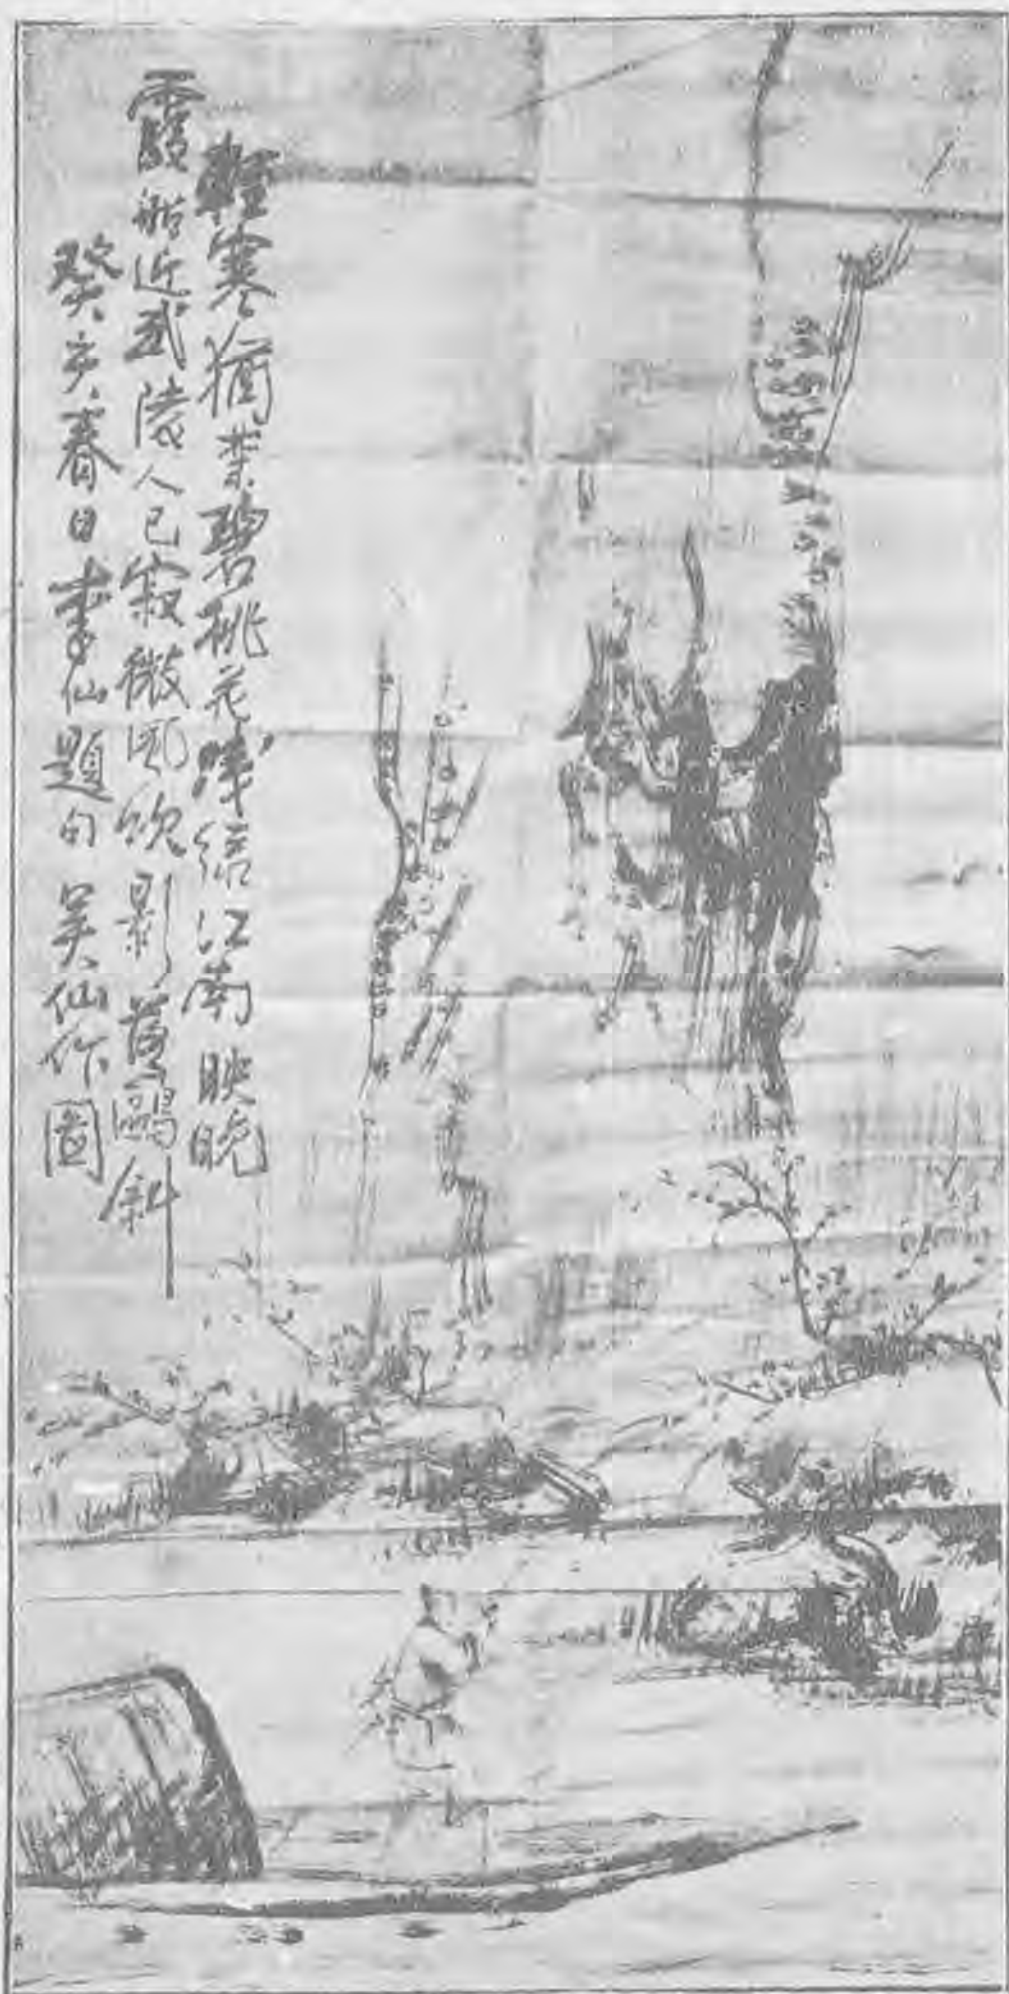 輕寒猶業碧桃花淺結江南映晚
霞船近武陵人已寂微風吹影鷗斜
癸亥春日李仙題句 吴仙作圖